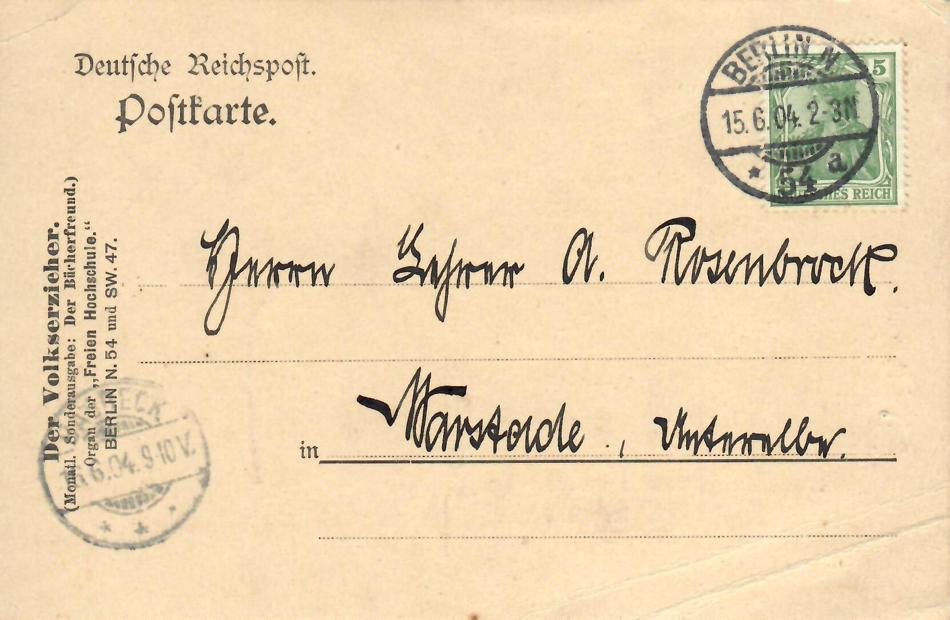 Deutsche Reichspost.
Postkarte.
BERLIN N
15.6.04. 2-3N
* 54 a
5
REICH
Der Volkserzieher.
(Monatl. Sonderausgabe: Der Bücherfreund.)
Organ der „Freien Hochschule."
BERLIN N. 54 und SW. 47.
Herrn Lehrer A. Rosenbrock.
in Warstade, Unterelbe.
6.04. 9-10 V.
* * *